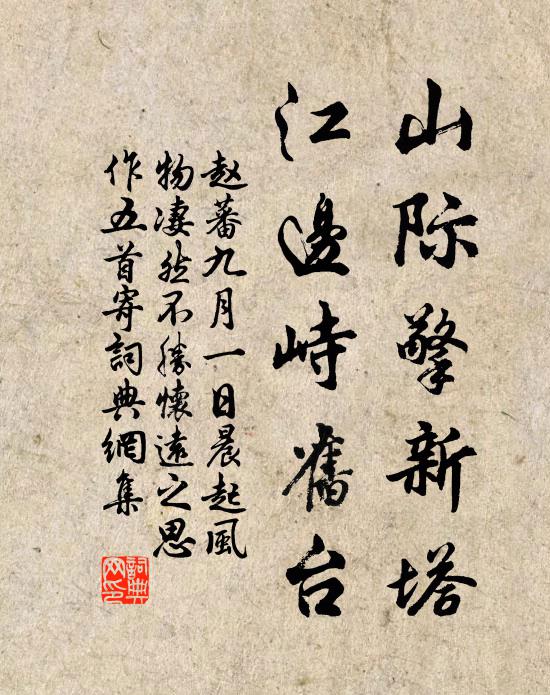 山际擎新塔
江邊峙舊台
赵蕃九月一日晨起風
物凄然不勝懷遠之思
作五首寄詞典網集
詞典
网印